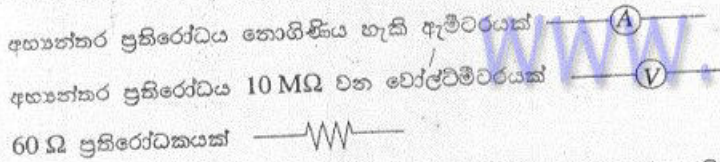 අභ්‍යන්තර ප්‍රතිරෝධය නොගිණිය හැකි ඇමීටරයක් A
අභ්‍යන්තර ප්‍රතිරෝධය 10 MΩ වන වෝල්ට්මීටරයක් V
60 Ω ප්‍රතිරෝධකයක්
www.